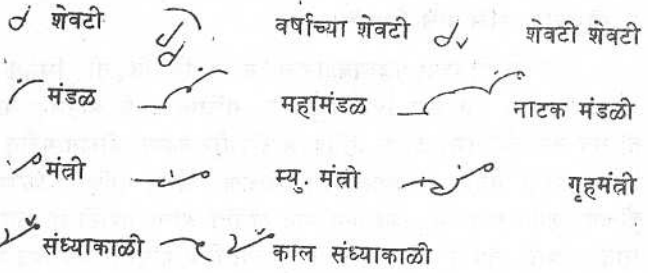 शेवटी वर्षाच्या शेवटी शेवटी शेवटी
मंडळ महामंडळ नाटक मंडळी
मंत्री म्यु. मंत्री गृहमंत्री
संध्याकाळी काल संध्याकाळी